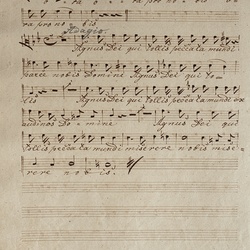 o - ra pro no - bis
ra pro no - bis
Adagio.
Agnus Dei qui tollis peccata mundi
parce nobis Domine Agnus Dei qui to-
llis Agnus Dei qui tollis peccata mundi ex
audi nos Do - mine Agnus Dei qui
tollis peccata mundi miserere nobis mise-
rere nobis.